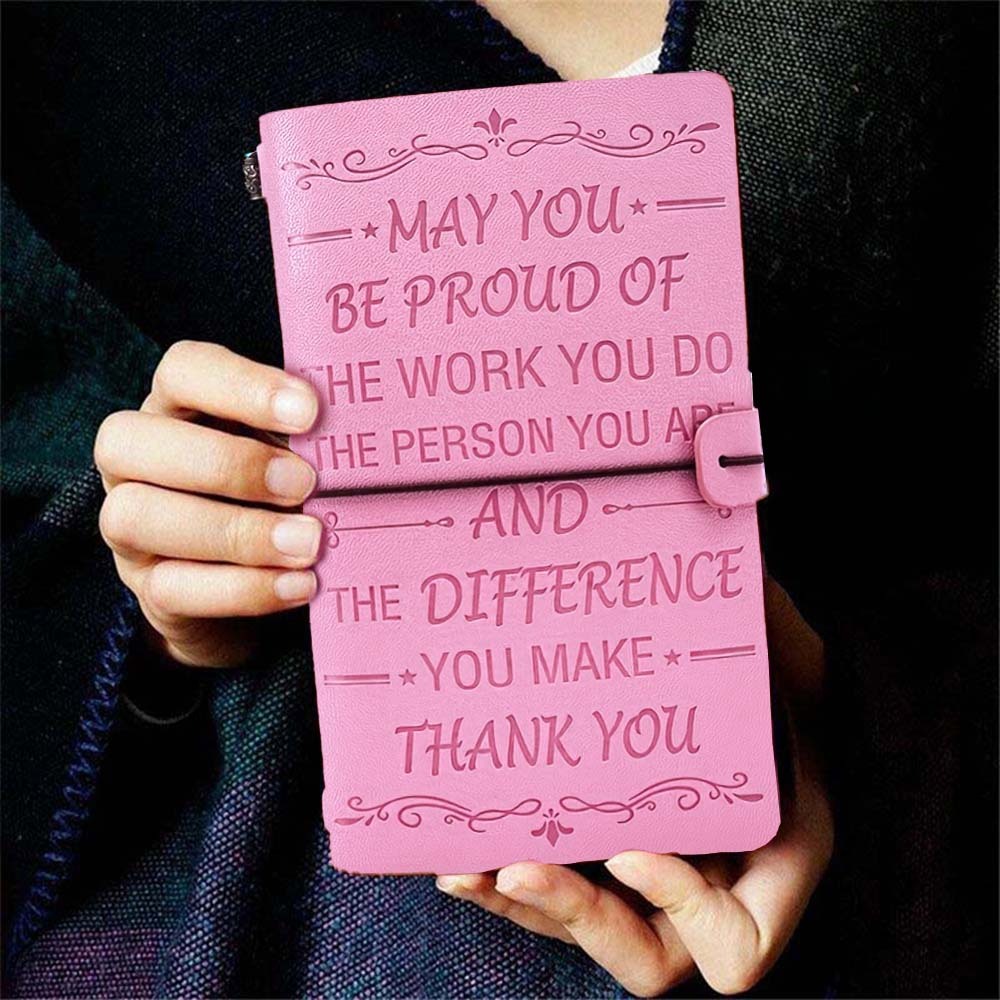 MAY YOU
BE PROUD OF
THE WORK YOU DO
THE PERSON YOU ARE
AND
THE DIFFERENCE
YOU MAKE
THANK YOU